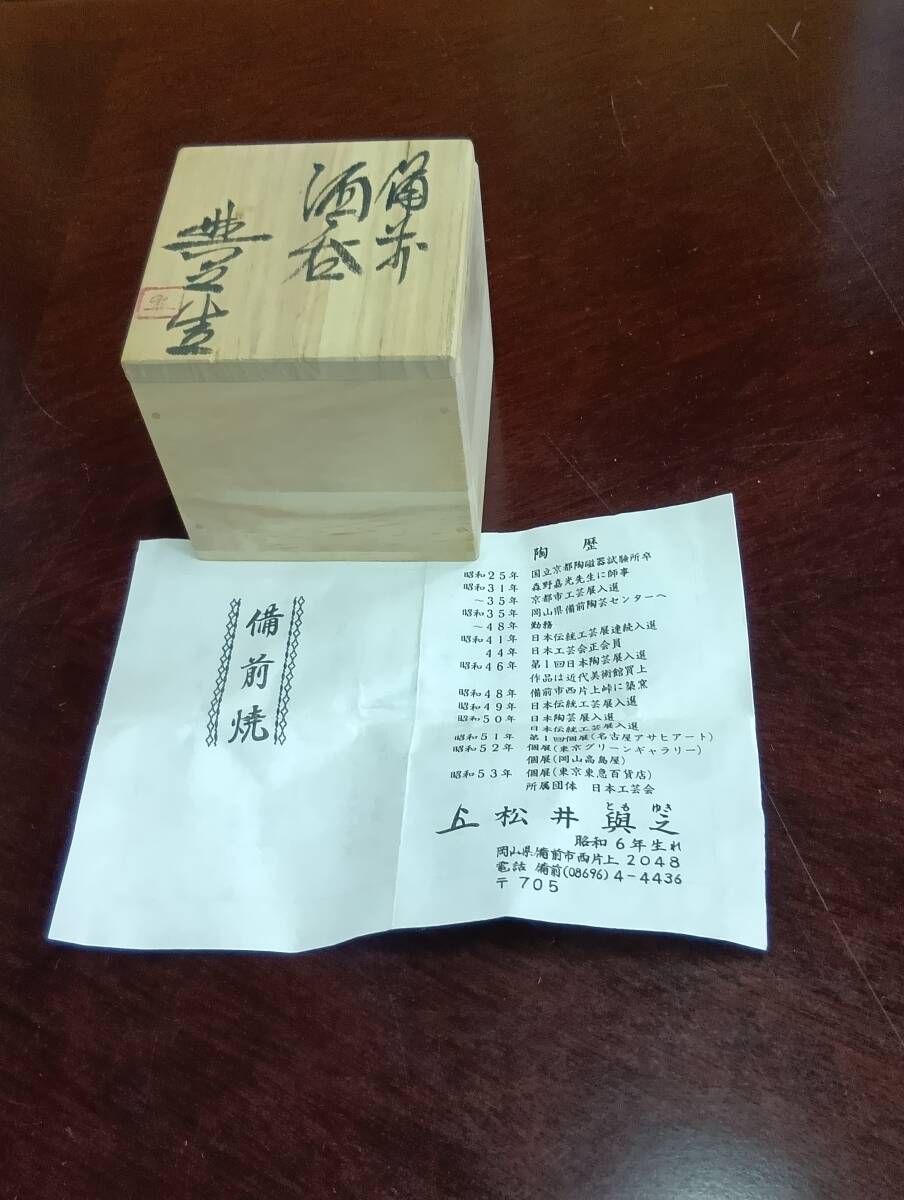 備前
酒呑
備前焼
陶歴
昭和25年 国立京都陶磁器試験所卒
昭和31年 森野嘉光先生に師事
～35年 京都市工芸展入選
昭和35年 岡山県備前陶芸センターへ
～48年 勤務
昭和41年 日本伝統工芸展連続入選
44年 日本工芸会正会員
昭和46年 第1回日本陶芸展入選
作品は近代美術館買上
昭和48年 備前市西片上峠に築窯
昭和49年 日本伝統工芸展入選
昭和50年 日本陶芸展入選
日本伝統工芸展入選
昭和51年 第1回個展(名古屋アサヒアート)
昭和52年 個展(東京グリーンギャラリー)
個展(岡山高島屋)
昭和53年 個展(東京東急百貨店)
所属団体 日本工芸会
松井與之
とも ゆき
昭和6年生れ
岡山県備前市西片上2048
電話 備前(08696)4-4436
〒705